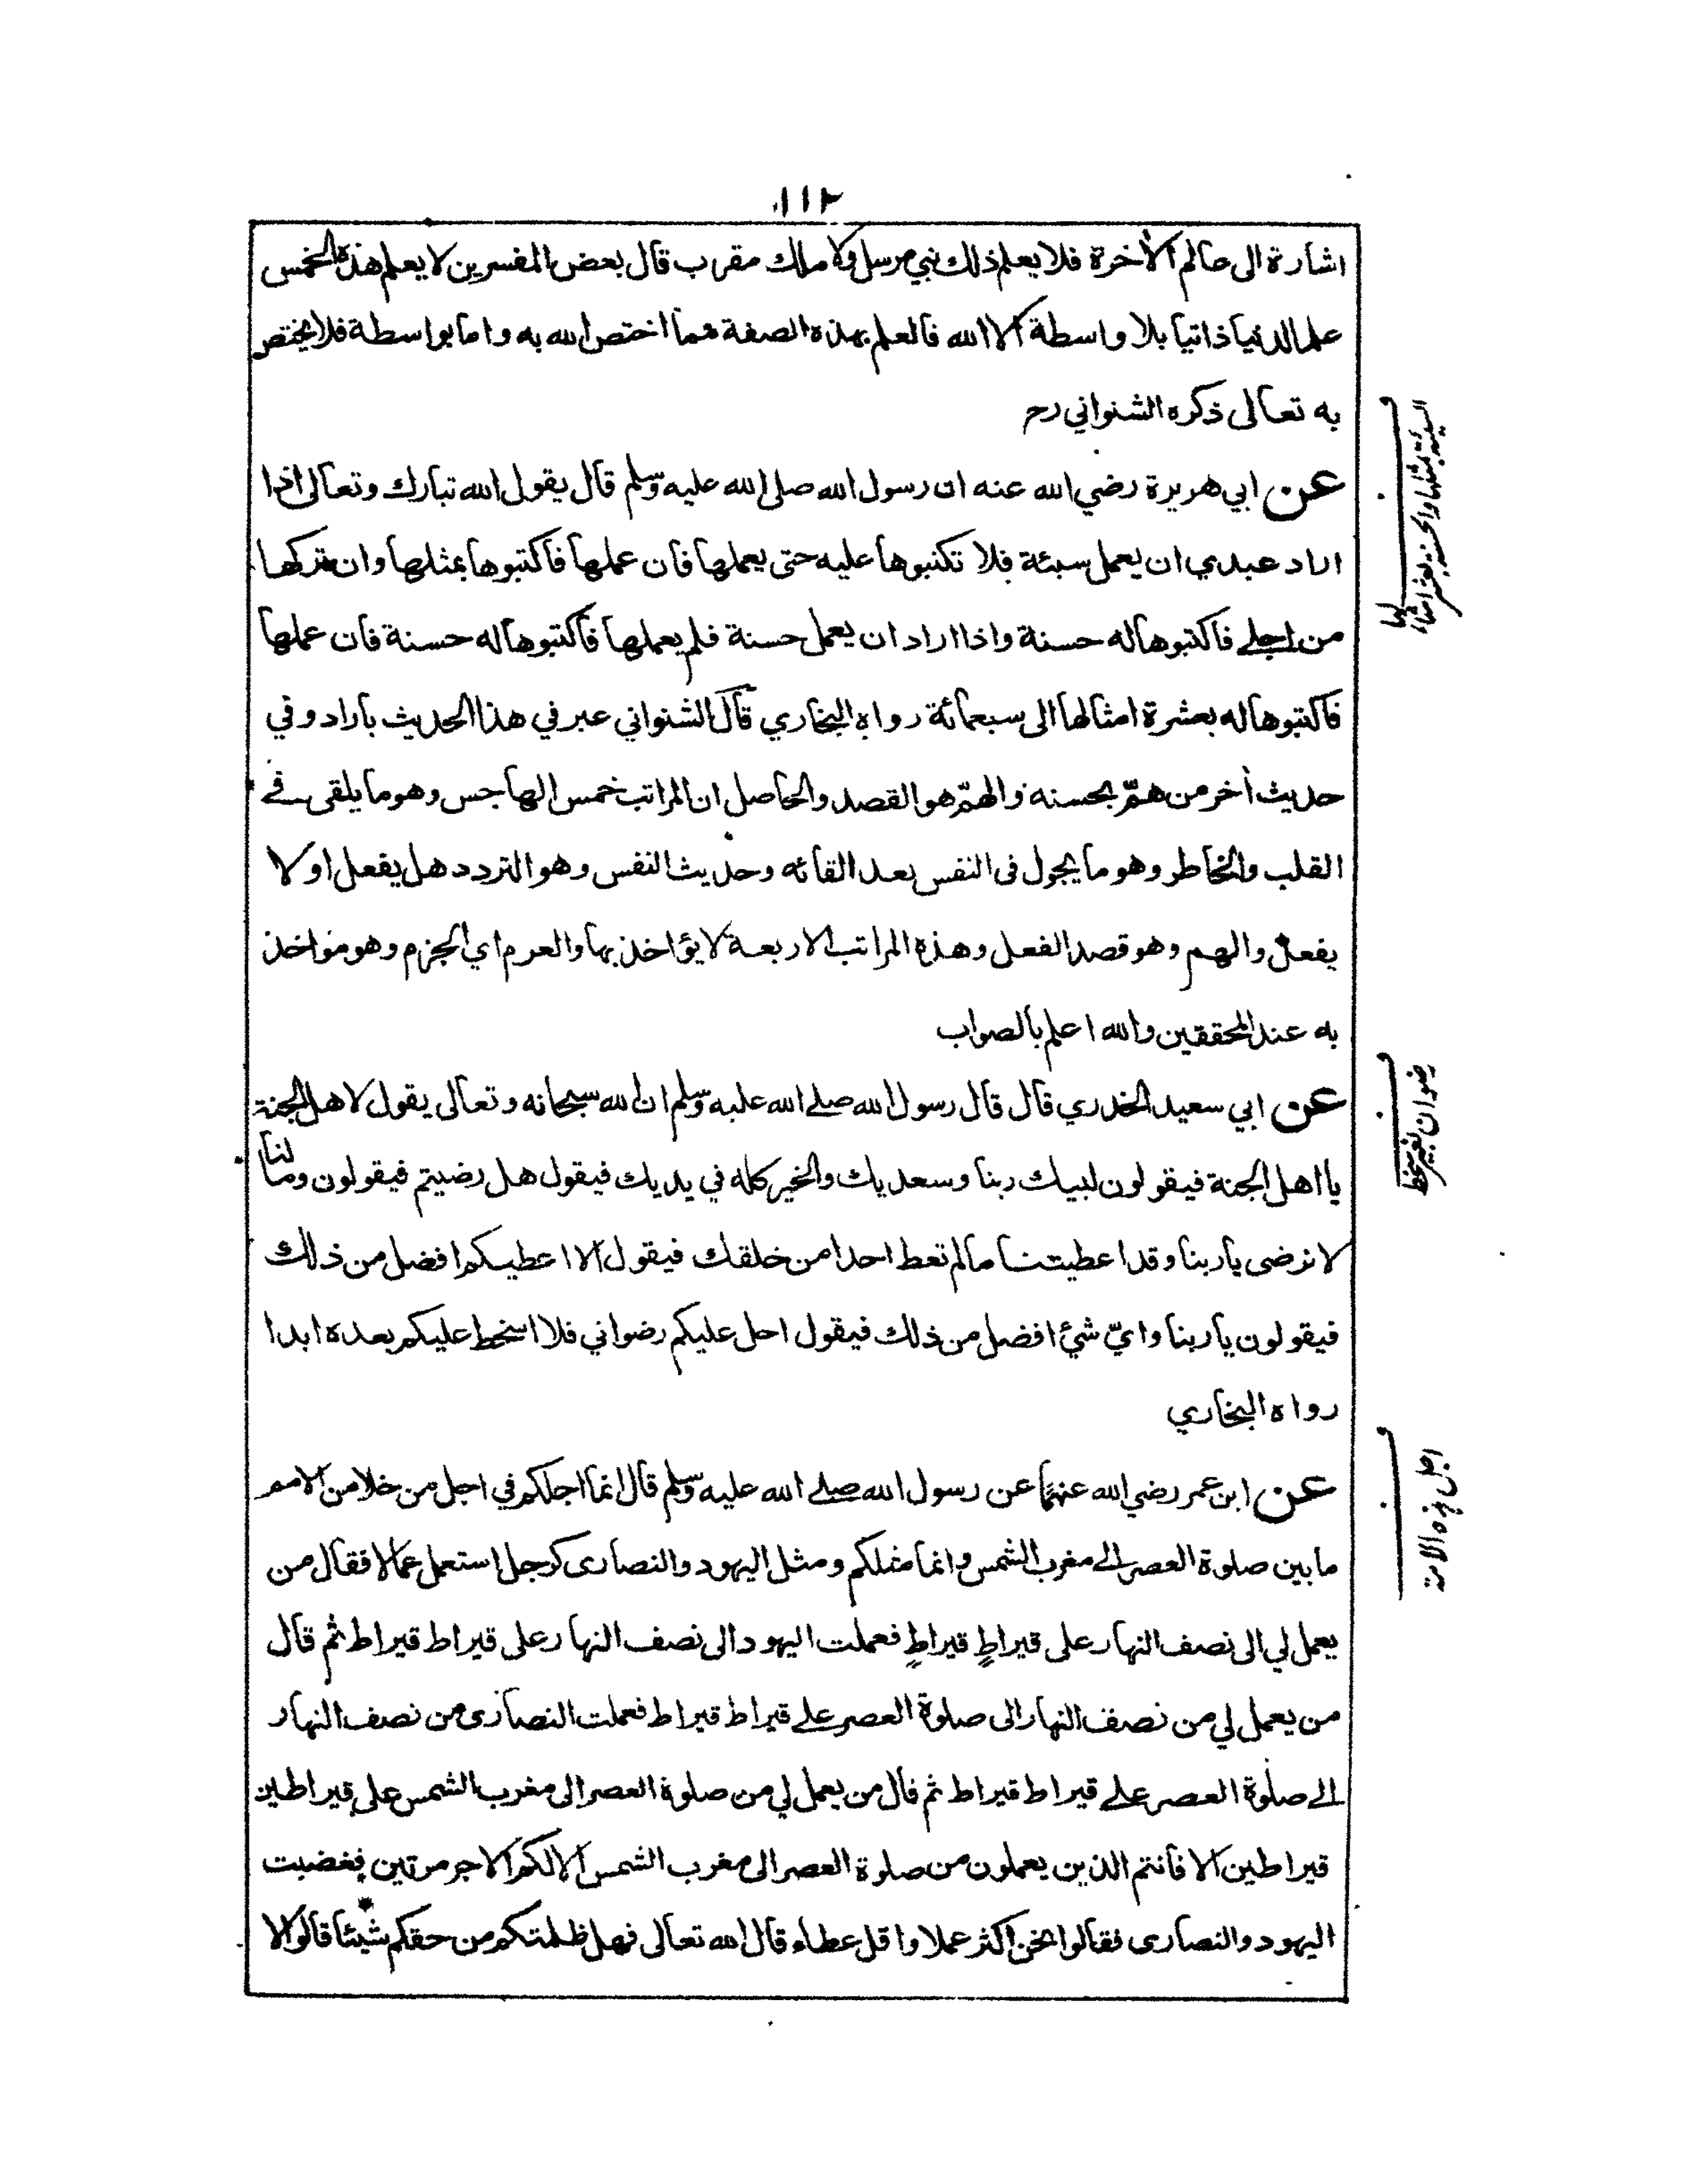 ١١٢
اشارة الى عالم الأخرة فلا يعلم ذلك نبي مرسل ولا ملك مقرب قال بعض المفسرين لا يعلم هذه الخمس
علما لدنيا ذاتيا بلا واسطة الا الله فالعلم بهذه الصفة مما اختص الله به واما بواسطة فلا يختص
به تعالى ذكره الشنواني رح
عن ابي هريرة رضي الله عنه ان رسول الله صلى الله عليه وسلم قال يقول الله تبارك وتعالى اذا
اراد عبدي ان يعمل سيئة فلا تكتبوها عليه حتى يعملها فان عملها فاكتبوها بمثلها وان تركها
من اجلي فاكتبوها له حسنة واذا اراد ان يعمل حسنة فلم يعملها فاكتبوها له حسنة فان عملها
فاكتبوها له بعشرة امثالها الى سبعمائة رواه البخاري قال الشنواني عبر في هذا الحديث باراد وفي
حديث أخر من همّ بحسنه والهمّ هو القصد والحاصل ان المراتب خمس الهاجس وهو ما يلقى في
القلب والخاطر وهو ما يجول فى النفس بعد القائه وحديث النفس وهو التردد هل يفعل او لا
يفعل والهم وهو قصد الفعل وهذه المراتب الاربعة لا يؤاخذ بها والعزم اي الجزم وهو مؤاخذ
به عند المحققين والله اعلم بالصواب
عن ابي سعيد الخدري قال قال رسول الله صلى الله عليه وسلم ان الله سبحانه وتعالى يقول لاهل الجنة
يا اهل الجنة فيقولون لبيك ربنا وسعديك والخير كله في يديك فيقول هل رضيتم فيقولون وما لنا
لا نرضى يا ربنا وقد اعطيتنا ما لم تعط احدا من خلقك فيقول الا اعطيكم افضل من ذلك
فيقولون يا ربنا وايّ شئ افضل من ذلك فيقول احل عليكم رضواني فلا اسخط عليكم بعده ابدا
رواه البخاري
عن ابن عمر رضي الله عنهما عن رسول الله صلى الله عليه وسلم قال انما اجلكم في اجل من خلا من الامم
ما بين صلوة العصر الى مغرب الشمس وانما مثلكم ومثل اليهود والنصارى كرجل استعمل عمالا فقال من
يعمل لي الى نصف النهار على قيراطٍ قيراطٍ فعملت اليهود الى نصف النهار على قيراط قيراط ثم قال
من يعمل لي من نصف النهار الى صلوة العصر على قيراط قيراط فعملت النصارى من نصف النهار
الى صلوة العصر على قيراط قيراط ثم قال من يعمل لي من صلوة العصر الى مغرب الشمس على قيراطين
قيراطين الا فانتم الذين يعملون من صلوة العصر الى مغرب الشمس الا لكم الاجر مرتين فغضبت
اليهود والنصارى فقالوا نحن اكثر عملا واقل عطاء قال الله تعالى فهل ظلمتكم من حقكم شيئا قالوا لا
السيئة بمثلها والحسنة بعشر امثالها
رضوان بغير سخط
اجل هذه الامة